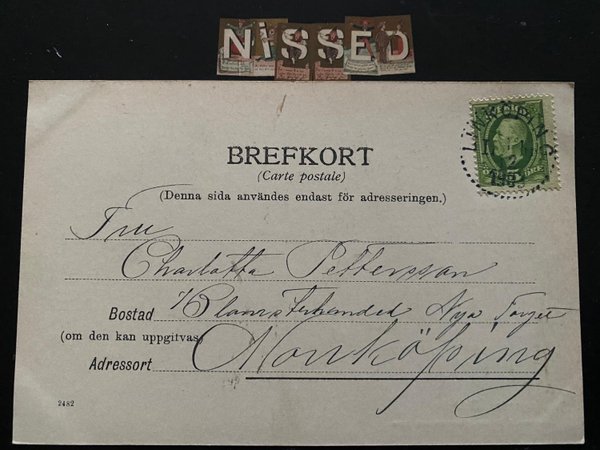 NiSSED
BREFKORT
(Carte postale)
(Denna sida användes endast för adresseringen.)
LINKÖPING
Fru
Charlotta Pettersson
Bostad Blomsterhandel Nya Torget
(om den kan uppgitvas)
Adressort Norrköping
2482